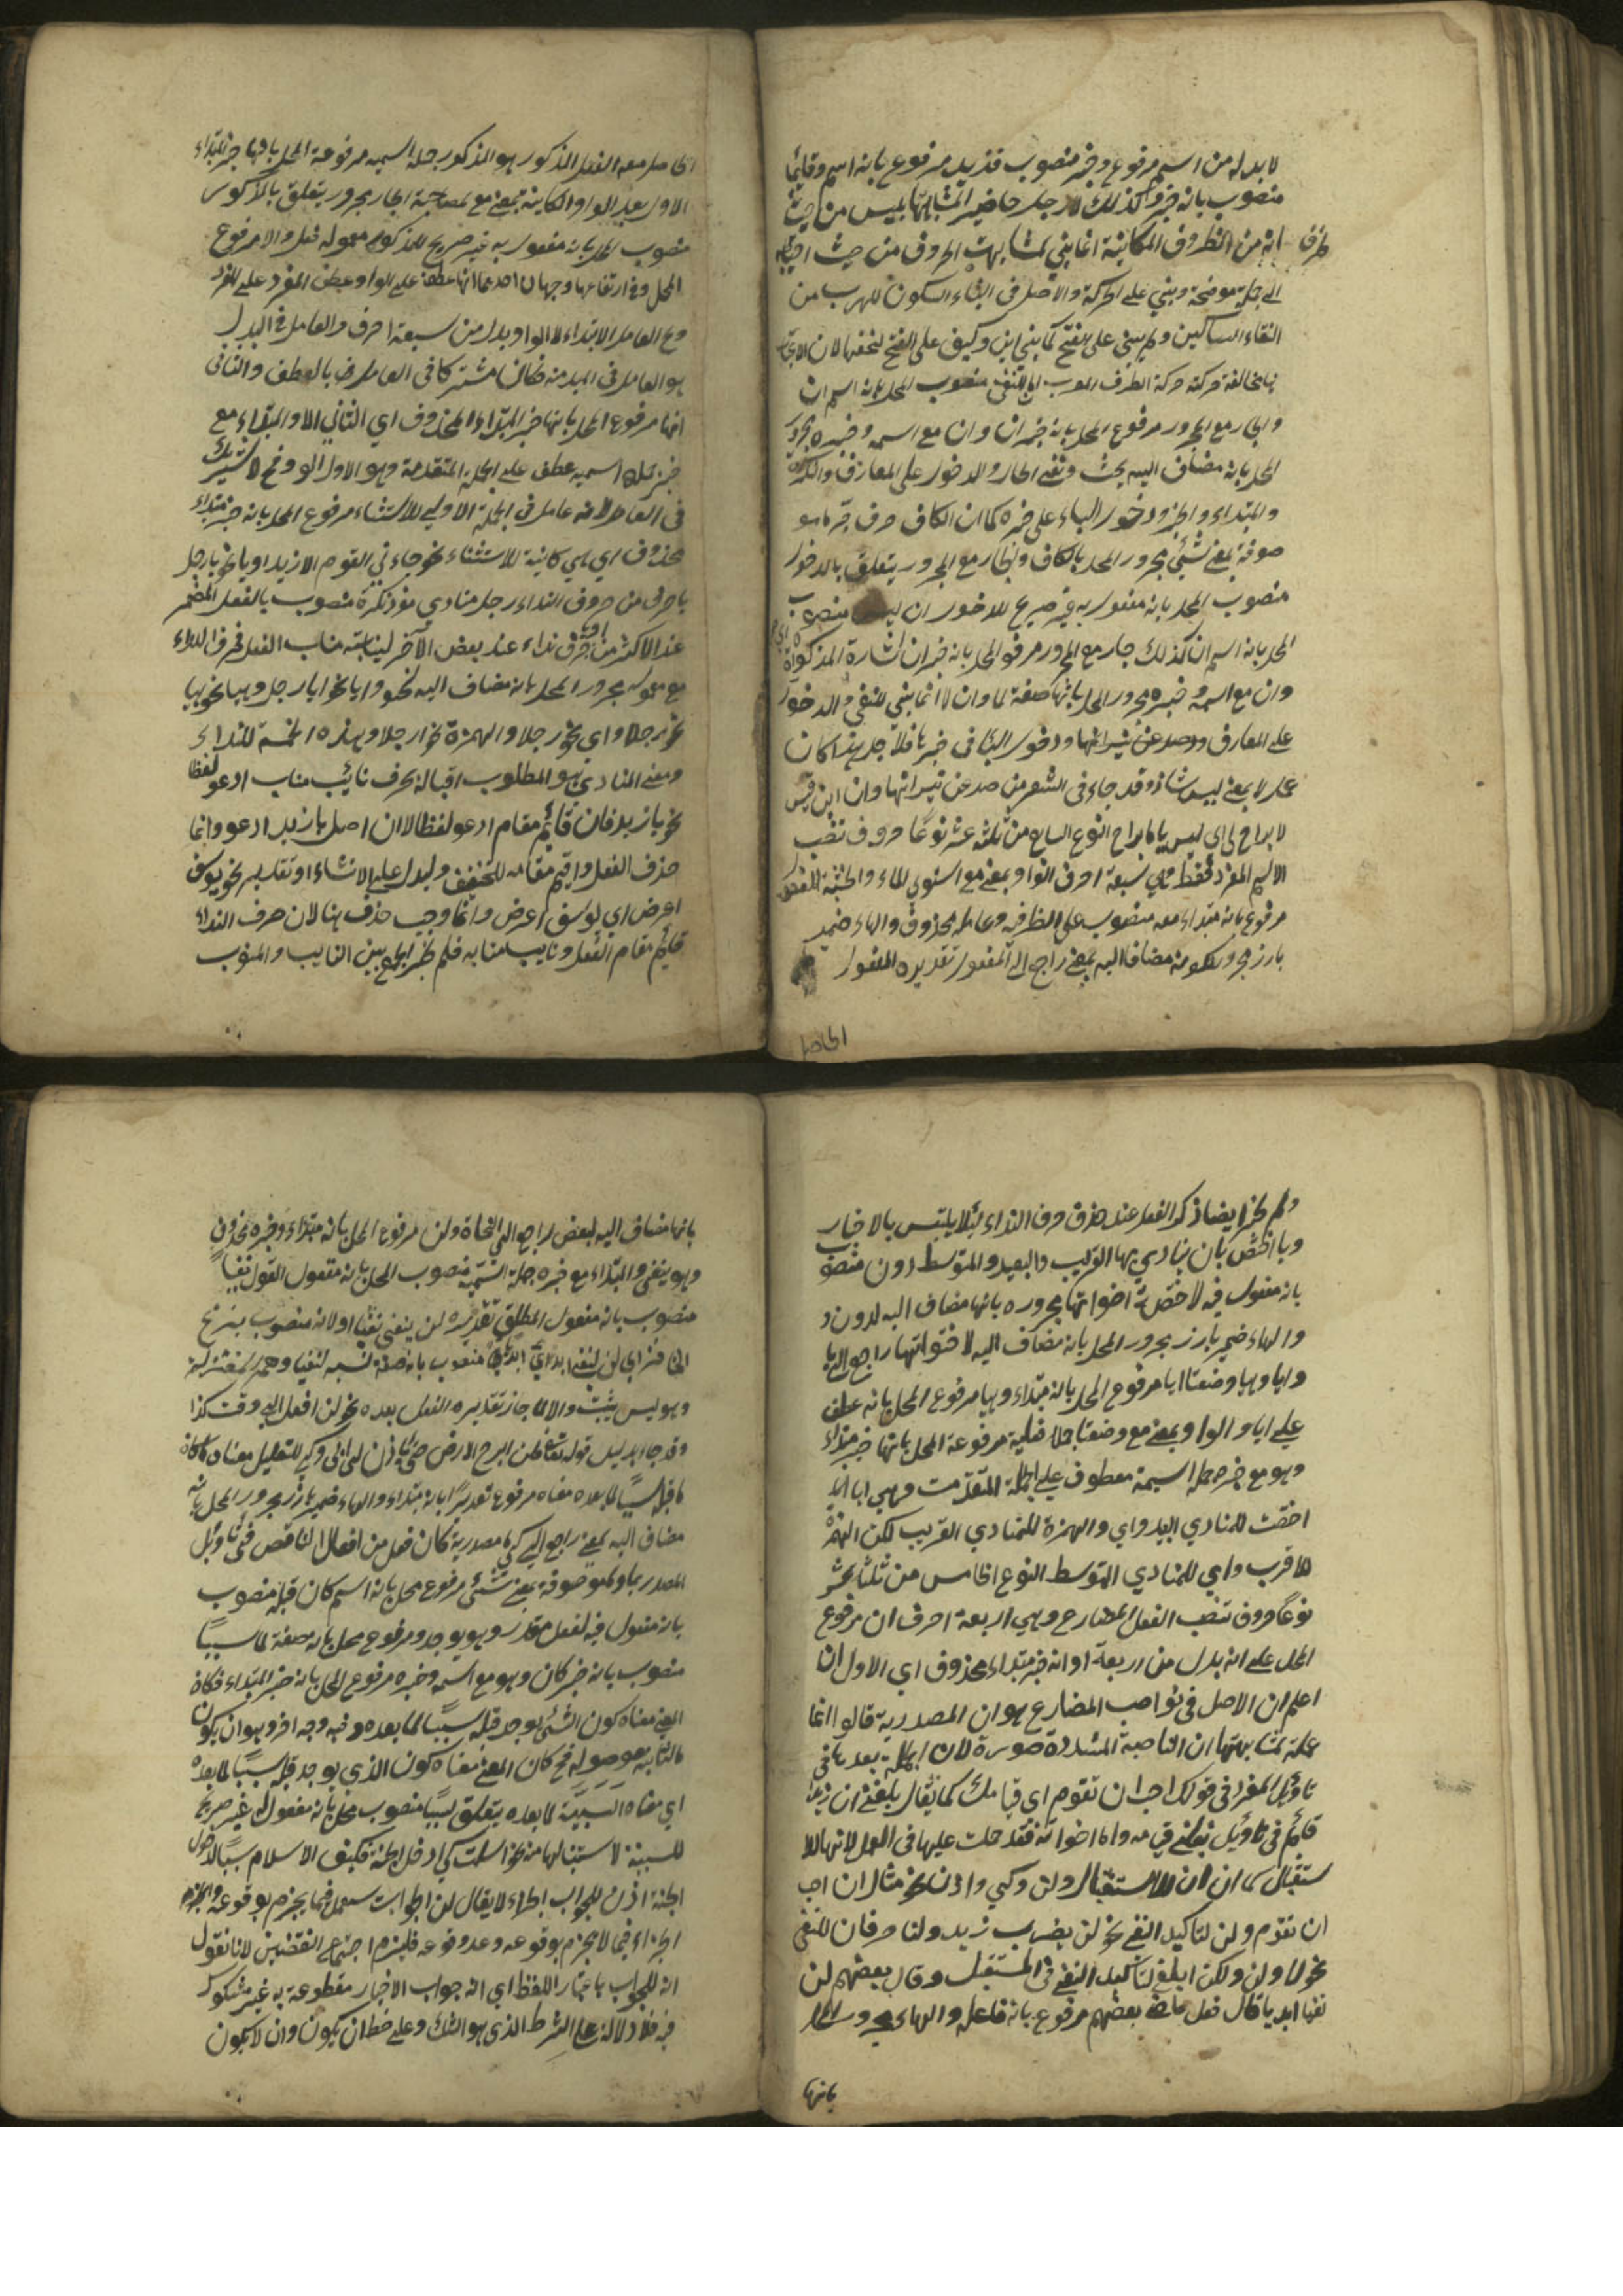 لا بد له من اسم مرفوع وخبر منصوب فزيد مرفوع بانه اسم وقايما
منصوب بانه خبره كذلك لا رجل حاضر المشابهتها بليس من حيث
ظرف انه من الظروف المكانية انما بني لمشابهت الحروف من حيث
الى جملة موضحة وبني على الحركة والاصل في البناء السكون للهرب من
التقاء الساكنين ولم يبنى على الفتح كما بني اين وكيف على الفتح لخفتها لان
مخالفة حركته حركة الظرف المعرب للنفي منصوب المحل بانه اسم ان
والجار مع المجرور مرفوع المحل بانه خبر ان وان مع اسمه وخبره مجرور
المحل بانه مضاف اليه بحث ونفي الحال والدخول على المعارف والنكرة
والمبتداء والخبر ودخول الباء على خبره كما ان الكاف حرف جر ما هو
صوفة بمعنى شيء مجرور المحل بالكاف والجار مع المجرور يتعلق بالدخول
منصوب المحل بانه مفعول به غير صريح للدخول ان ليس منصوب
المحل بانه اسم ان كذلك جار مع المجرور مرفوع المحل بانه خبر ان اشارة المذكورة
وان مع اسمه وخبره مجرور المحل بانها صفة لما وان لا انما بني للنفي والدخول
على المعارف ودخول الباء في خبرها فلاجل هذا كان
عمل لا بمعنى ليس شاذ وقد جاء في الشعر من صد عن نيرانها وان ابن قيس
لا براح لي اي ليس بي براح النوع الرابع من ثلثة عشر نوعا حروف تنصب
الاسم المفرد فقط وهي سبعة احرف الواو بمعنى مع استوى الماء والخشبة
مرفوع بانه مبتداء معه منصوب على الظرفية وعامله محذوف والهاء ضمير
بارز مجرور لكونه مضافا اليه بمعنى راجع الى المفعول تقديره المفعول
الحاصل
الحاصل معه الفعل المذكور هو المذكور جملة اسمية مرفوعة المحل بانها خبر المبتداء
الاول بعد الواو الكاينة بمعنى مع لمصاحبة الجار مجرور يتعلق بالمذكور
منصوب المحل بانه مفعول به غير صريح للمذكور معمول فعل والا مرفوع
المحل وفي ارتفاعها وجهان احدهما انها عطف على الواو عطف المفرد على المفرد
وح العامل الابتداء لا الواو بدل من سبعة احرف والعامل في البدل
هو العامل في المبدل منه فكان مشتركا في العامل بالعطف والثاني
انها مرفوع المحل بانها خبر المبتداء المحذوف اي الثاني الا والمبتداء مع
خبره جملة اسمية عطف على الجملة المتقدمة وهو الاول الواو وح لا تشريك
في العامل لانه عامل في الجملة الاولى للاستثناء مرفوع المحل بانه خبر مبتداء
محذوف اي هي كائنة للاستثناء نحو جاءني القوم الا زيدا ويا نحو يا رجل
يا حرف من حروف النداء رجل منادى مفرد نكرة منصوب بالفعل المضمر
عند الاكثر من حرف نداء عند بعض الآخر لنيابته مناب الفعل فحرف النداء
مع معموله مجرور المحل بانه مضاف اليه لنحو وايا نحو ايا رجل وهيا نحو هيا
نحو رجلا واي نحو رجلا والهمزة نحو ارجلا وهذه الخمسة للنداء
ومعنى المنادي هو المطلوب اقباله بحرف نائب مناب ادعو لفظا
نحو يا زيد فان قائم مقام ادعو لفظا لان اصل يا زيد ادعو وانما
حذف الفعل واقيم مقامه للتخفيف وليدل على الانشاء او تقديرا نحو يوسف
اعرض اي يوسف اعرض وانما وجب حذف هنا لان حرف النداء
قائم مقام الفعل ونايب منابه فلم يجز الجمع بين النايب والمنوب
ولم يجز ايضا ذكر الفعل عند حذف حرف النداء لئلا يلتبس بالاخبار
ويا اختص بان ينادى بها القريب والبعيد والمتوسط دون منصوب
بانه مفعول فيه لاختصت اخواتها مجرورة بانها مضاف اليه لدون
والهاء ضمير بارز مجرور المحل بانه مضاف اليه لاخواتها راجع الى يا
وايا وهيا وضعتا ايا مرفوع المحل بانه مبتداء وهيا مرفوع المحل بانه عطف
على ايا والواو بمعنى مع وضعتا جملة فعلية مرفوعة المحل بانها خبر مبتداء
وهو مع خبره جملة اسمية معطوف على الجملة المتقدمت وهي ايا
اختت للمنادي البعيد واي والهمزة للمنادي القريب لكن الهمزة
للاقرب واي للمنادي المتوسط النوع الخامس من ثلثة عشر
نوعا حروف تنصب الفعل المضارع وهي اربعة احرف ان مرفوع
المحل على انه بدل من اربعة او انه خبر مبتداء محذوف اي الاول ان
اعلم ان الاصل في نواصب المضارع هو ان المصدرية قالوا انما
عملت لمشابهتها ان الناصبة المشددة صورة لان الجملة بعدها في
تاويل المفرد في قولك احب ان تقوم اي قيامك كما يقال بلغني ان زيدا
قائم في تاويل بلغني قيامه واما اخواته فقد حملت عليها في العمل لانها للا
ستقبال كما ان ان للاستقبال ولن وكي واذن نحو مثال ان احب
ان تقوم ولن لتاكيد النفي نحو لن يضرب زيد ولنا حرفان للنفي
نحو لا ولن ولكن ابلغ لتاكيد النفي في المستقبل وقال بعضهم لن
نفيا ابديا قال فعل ماض بعضهم مرفوع بانه فاعله والهاء مجرور
بانها
بانها مضاف اليه لبعض راجع الى النحاة ولن مرفوع المحل بانه مبتداء وخبره محذوف
وهو ينفي والمبتداء مع خبره جملة اسمية منصوب المحل بانه مفعول القول نفيا
منصوب بانه مفعول المطلق تقديره لن ينفي نفيا او لانه منصوب بنزع
الخافض اي لن لنفي ابدي منصوب بانه صفة لنفيا وهم المعتزلة
وهو ليس يثبت والا لما جاز تقديره الفعل بعده نحو لن افعل الى وقت كذا
وقد جاء بدليل قوله تعالى فلن ابرح الارض حتى ياذن لي ابي وكي للتعليل معناه كان
ما قبله سببا لما بعده معناه مرفوع تقديرا بانه مبتداء والهاء ضمير بارز مجرور المحل بانه
مضاف اليه بمعنى راجع الى كي ما مصدرية كان فعل من افعال الناقص في تاويل
المصدر بما ولموصوفة بمعنى شيء مرفوع محل بانه اسم كان قبله منصوب
بانه مفعول فيه لفعل مقدر وهو يوجد ومرفوع محل بانه صفة لما سببا
منصوب بانه خبر كان وهو مع اسمه وخبره مرفوع المحل بانه خبر المبتداء فكان
المعنى معناه كون الشيء يوجد قبله سببا لما بعده وفيه وجه اخر وهو ان يكون
ما الثانية موصولة فح كان المعنى معناه كون الذي يوجد قبله سببا لما بعده
اي معناه السببية لما بعده يتعلق بسببا منصوب محل بانه مفعول له غير صريح
للسببية نحو اسلمت كي ادخل الجنة فكيف الاسلام سببا لدخول
الجنة اذن للجواب الجزاء لا يقال لن الجواب يستعمل فيما يجزم بوقوعه والجزم
الجزاء فيما لا يجزم بوقوعه وعد وقوعه فيلزم اجتماع النقيضين لانا نقول
انه للجواب باعتبار اللفظ اي انه جواب الاخبار مقطوعة به غير مشكوك
فيه فلا دلالة على الشرط الذي هو الشك وعلى خط ان يكون وان لا يكون